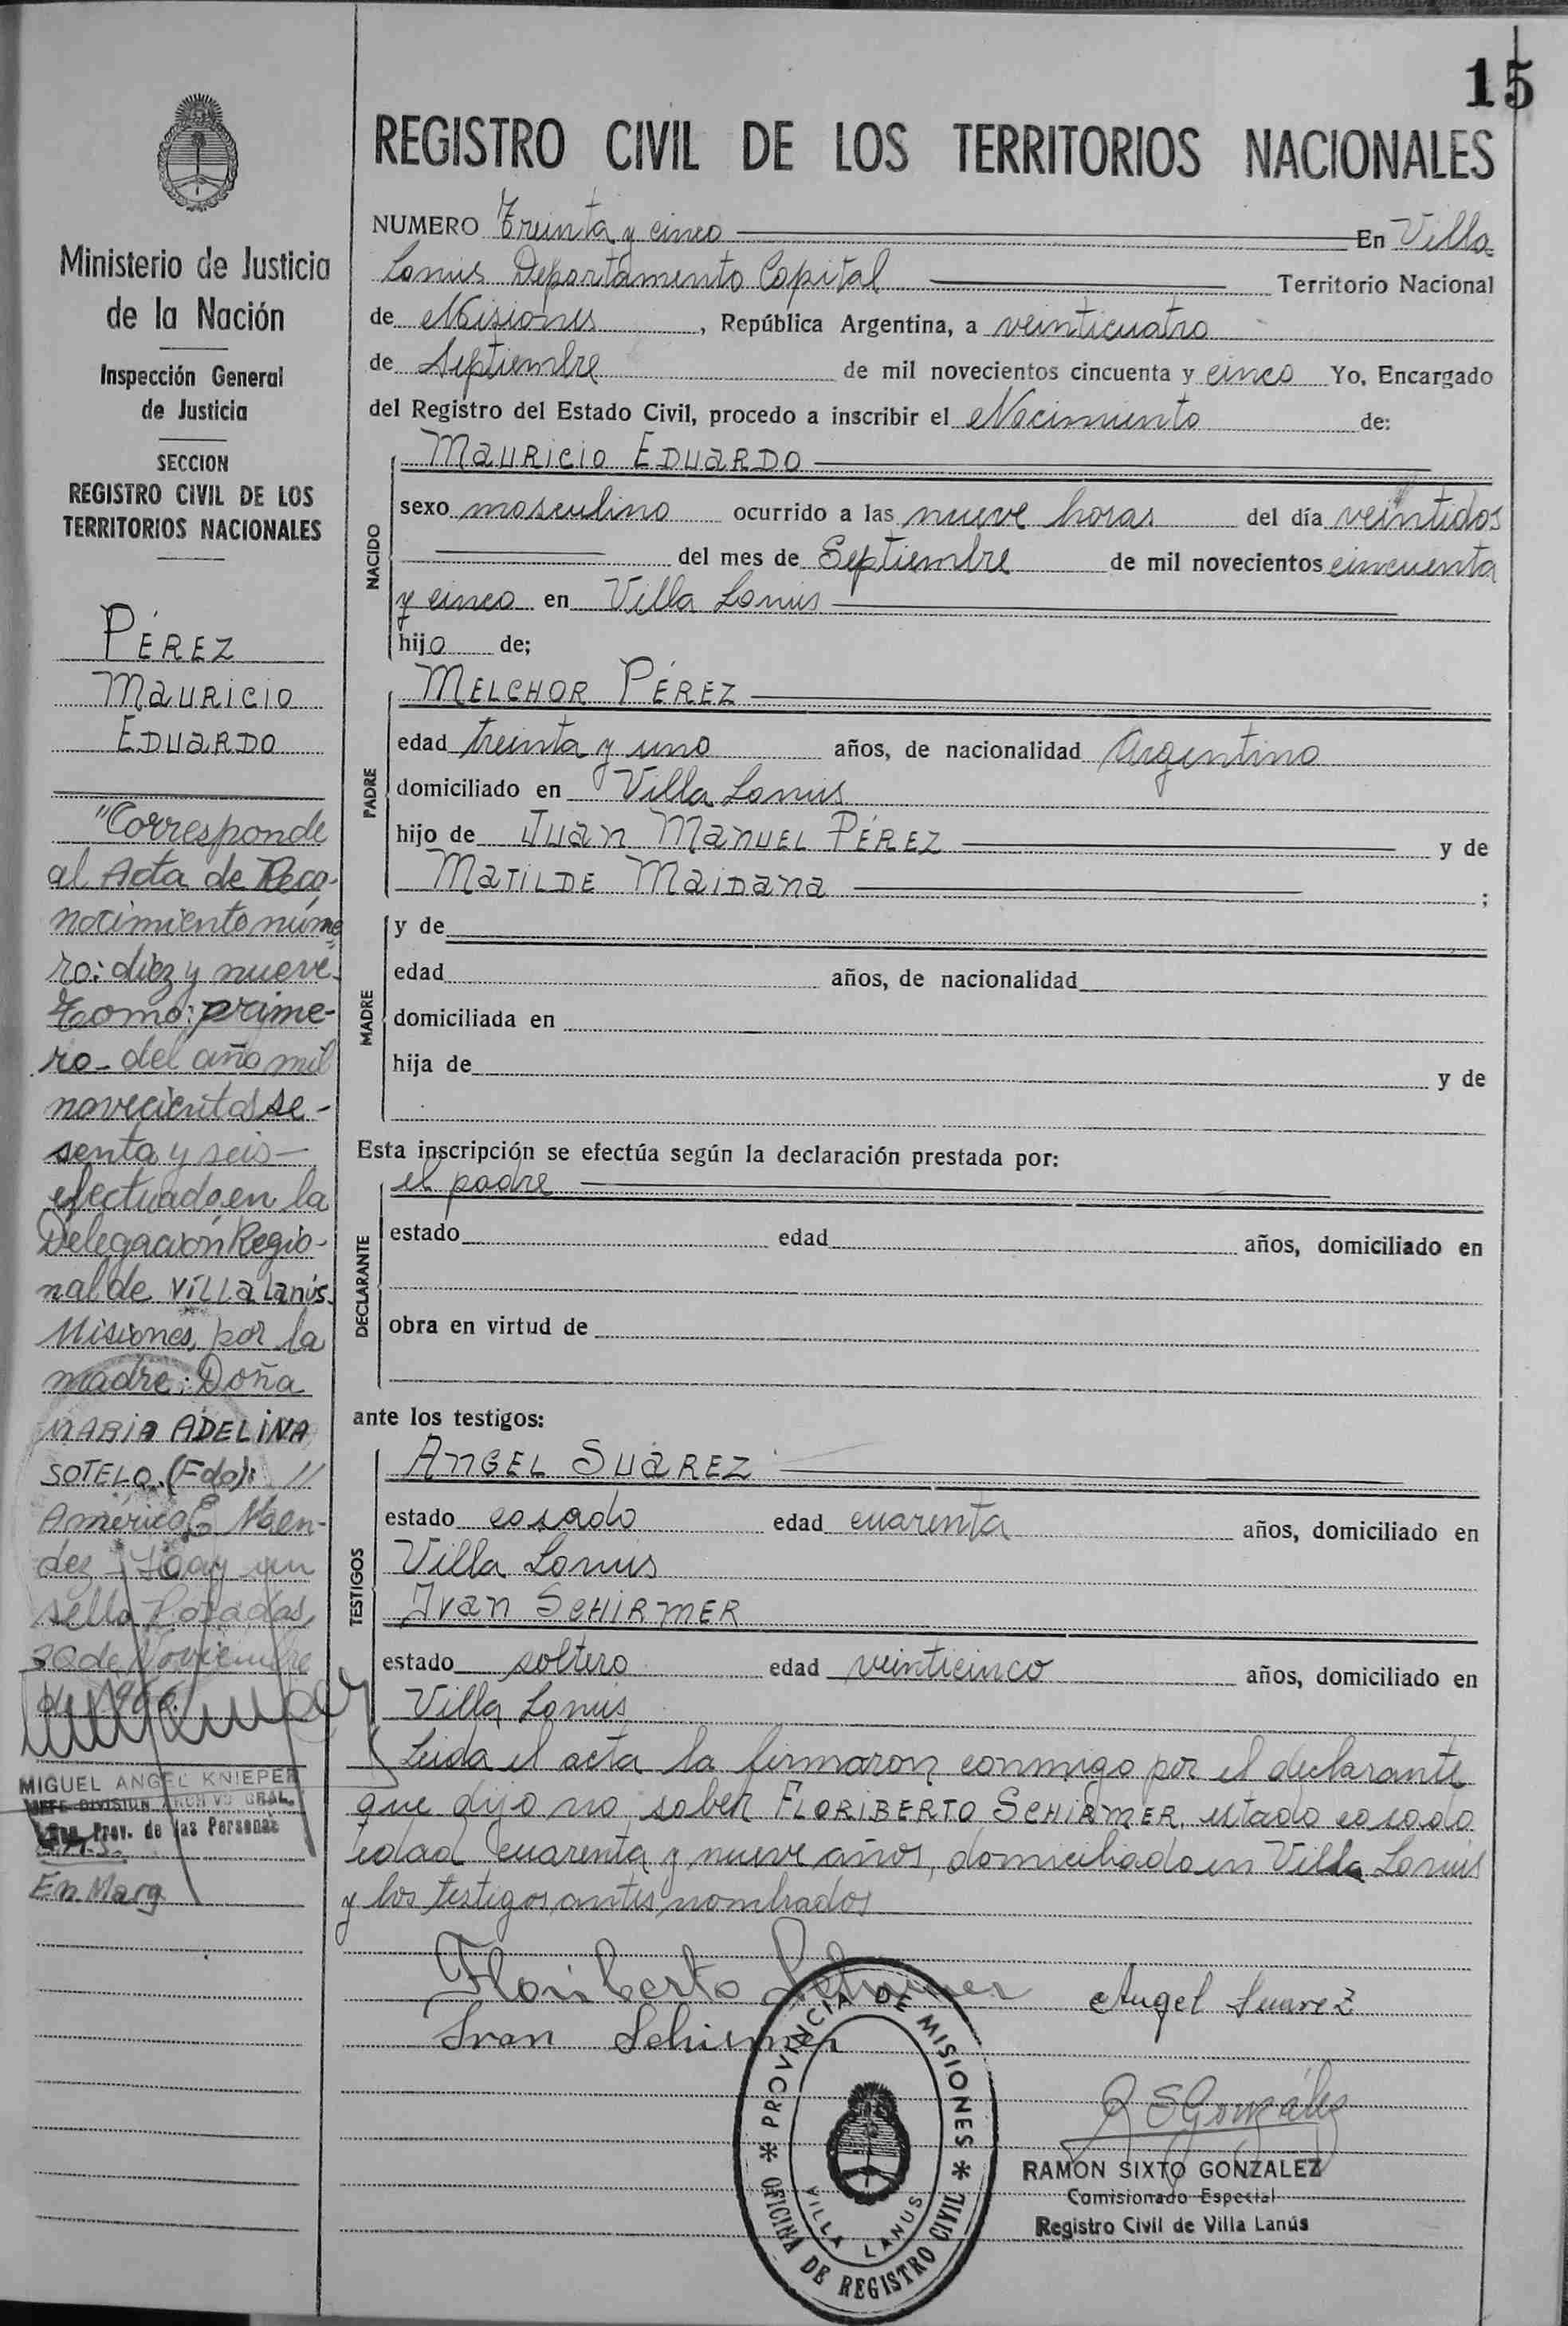 15
REGISTRO CIVIL DE LOS TERRITORIOS NACIONALES
Ministerio de Justicia
de la Nación
Inspección General
de Justicia
SECCION
REGISTRO CIVIL DE LOS
TERRITORIOS NACIONALES
PÉREZ
MAURICIO
EDUARDO
"Corresponde
al Acta de Reco-
nocimiento núme-
ro: diez y nueve-
Tomo: prime-
ro- del año mil
novecientos se-
senta y seis-
efectuado en la
Delegación Regio-
nal de VILLA Lanús.
Misiones, por la
madre: Doña
MARIA ADELINA
SOTELO. (Fdo): //
América
dez - Hay un
sello Posadas,
30 de Noviembre
de 1966.
MIGUEL ANGEL KNIEPER
JEFE DIVISION ARCHIVO GRAL.
Prov. de las Personas
En Marg
NUMERO Treinta y cinco En Villa
Lanus Departamento Capital Territorio Nacional
de Misiones, República Argentina, a veinticuatro
de Septiembre de mil novecientos cincuenta y cinco Yo, Encargado
del Registro del Estado Civil, procedo a inscribir el Nacimiento de:
NACIDO
MAURICIO EDUARDO
sexo masculino ocurrido a las nueve horas del día veintidos
del mes de Septiembre de mil novecientos cincuenta
y cinco en Villa Lanus
hijo de;
PADRE
MELCHOR PÉREZ
edad treinta y uno años, de nacionalidad Argentino
domiciliado en Villa Lanus
hijo de JUAN MANUEL PÉREZ y de
MATILDE MAIDANA ;
MADRE
y de
edad años, de nacionalidad
domiciliada en
hija de y de
Esta inscripción se efectúa según la declaración prestada por:
DECLARANTE
el padre
estado edad años, domiciliado en
obra en virtud de
ante los testigos:
TESTIGOS
ANGEL SUAREZ
estado casado edad cuarenta años, domiciliado en
Villa Lanus
IVAN SCHIRMER
estado soltero edad veinticinco años, domiciliado en
Villa Lanus
Leida el acta la firmaron conmigo por el declarante
que dijo no saber FLORIBERTO SCHIRMER, estado casado
edad cuarenta y nueve años, domiciliado en Villa Lanus
y los testigos antes nombrados
Floriberto Schirmer Angel Suarez
Ivan Schirmer
R S González
PROVINCIA DE MISIONES * OFICINA DE REGISTRO CIVIL *
VILLA LANUS
RAMON SIXTO GONZALEZ
Comisionado Especial
Registro Civil de Villa Lanús